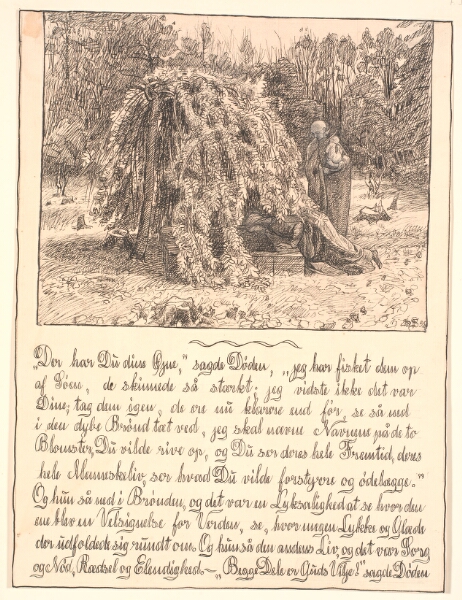 "Der har Du dine Øjne," sagde Døden, "jeg har fisket dem op
af Søen, de skinnede så stærkt; jeg vidste ikke det var
Dine; tag dem igen, de ere nu klarere end før, se så ned
i den dybe Brønd tæt ved, jeg skal nævne Navnene på de to
Blomster, Du vilde rive op, og Du ser deres hele Fremtid, deres
hele Menneskeliv, ser hvad Du vilde forstyrre og ödelægge."
Og hun så ned i Brønden, og det var en Lyksalighed at se hvor den
ene blev en Velsignelse for Verden, se, hvor megen Lykke og Glæde
der udfoldede sig rundt om. Og hun så den andens Liv, og det var Sorg
og Nöd, Rædsel og Elendighed. — "Begge Dele er Guds Vilje!" sagde Døden